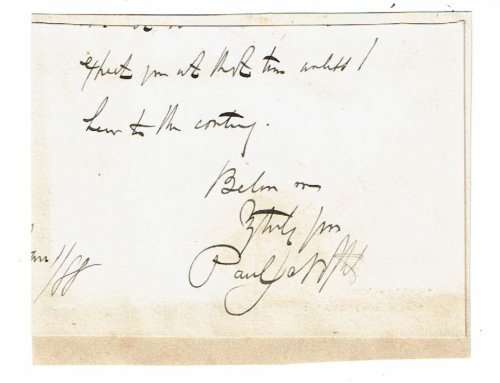 expect you at that time unless I
hear to the contrary.
Believe me
truly yours
Paul
/88